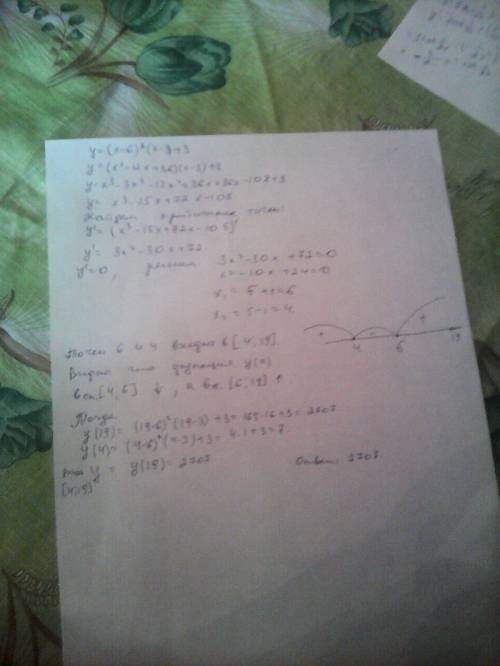 y=(x-6)²(x-3)+3
y=(x²-12x+36)(x-3)+3
y=x³-3x²-12x²+36x+36x-108+3
y= x³-15x+72x-105
Найдем критические точки:
y'=(x³-15x+72x-105)'
y'= 3x²-30x+72.
y'=0, решаем 3x²-30x+72=0
x²-10x+24=0
x₁=5+1=6
x₂=5-1=4
+ - +
4 6 19
Точки 6 и 4 входят в [4;19].
Видно что функция y(x)
на [4;6] ↓, а на [6;19] ↑
Тогда
y(19)=(19-6)²(19-3)+3=169·16+3=2707
y(4)=(4-6)²(4-3)+3=4·1+3=7.
y = y(19)=2707.
[4;19]
Ответ: 2707.